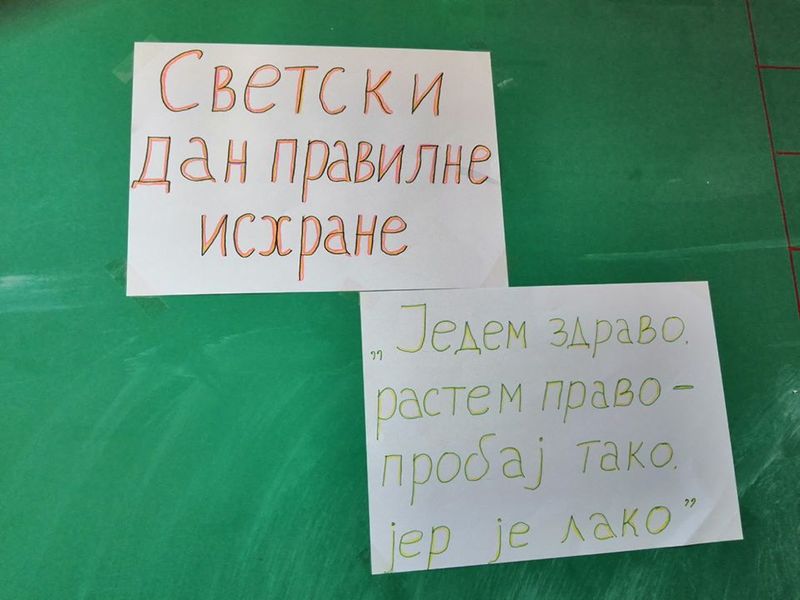 Светски
дан правилне
исхране
„Једем здраво,
растем право –
пробај тако,
јер је лако”